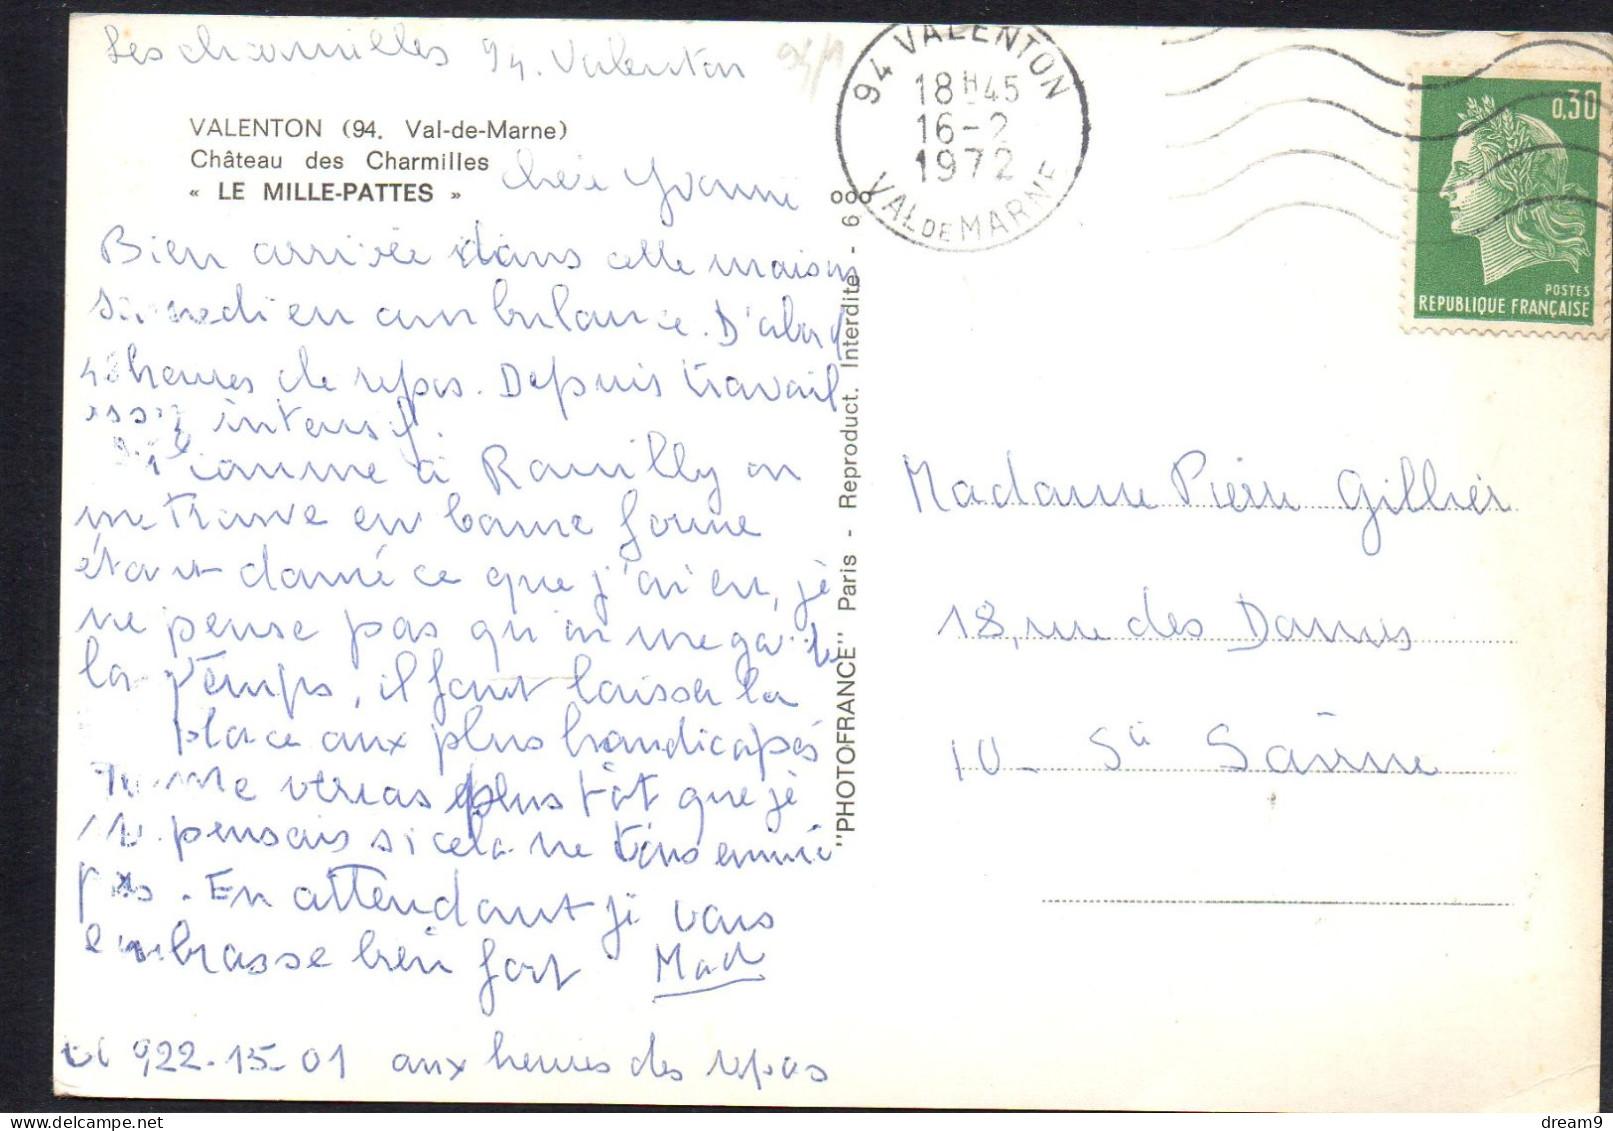 Les charmilles 94. Valenton
VALENTON (94. Val-de-Marne)
Château des Charmilles
« LE MILLE-PATTES »
chère Yvonne
Bien arrivée dans cette maison
samedi en ambulance. D'abord
48 heures de repos. Depuis travail
assez intensif.
comme à Romilly on
me trouve en bonne forme
étant donné ce que j'ai eu, je
ne pense pas qu'on me garde
longtemps, il faut laisser la
place aux plus handicapés
Tu me verras plus tôt que je
ne pensais si cela ne vous ennuie
pas. En attendant je vous
embrasse bien fort Mad
tel 922-15-01 aux heures des repas
"PHOTOFRANCE" Paris - Reproduct. Interdite - 6 000
94 VALENTON
18H45
16-2
1972
VAL DE MARNE
0,30
POSTES
REPUBLIQUE FRANÇAISE
Madame Pierre Gillier
18, rue des Dames
10 - Ste Savine